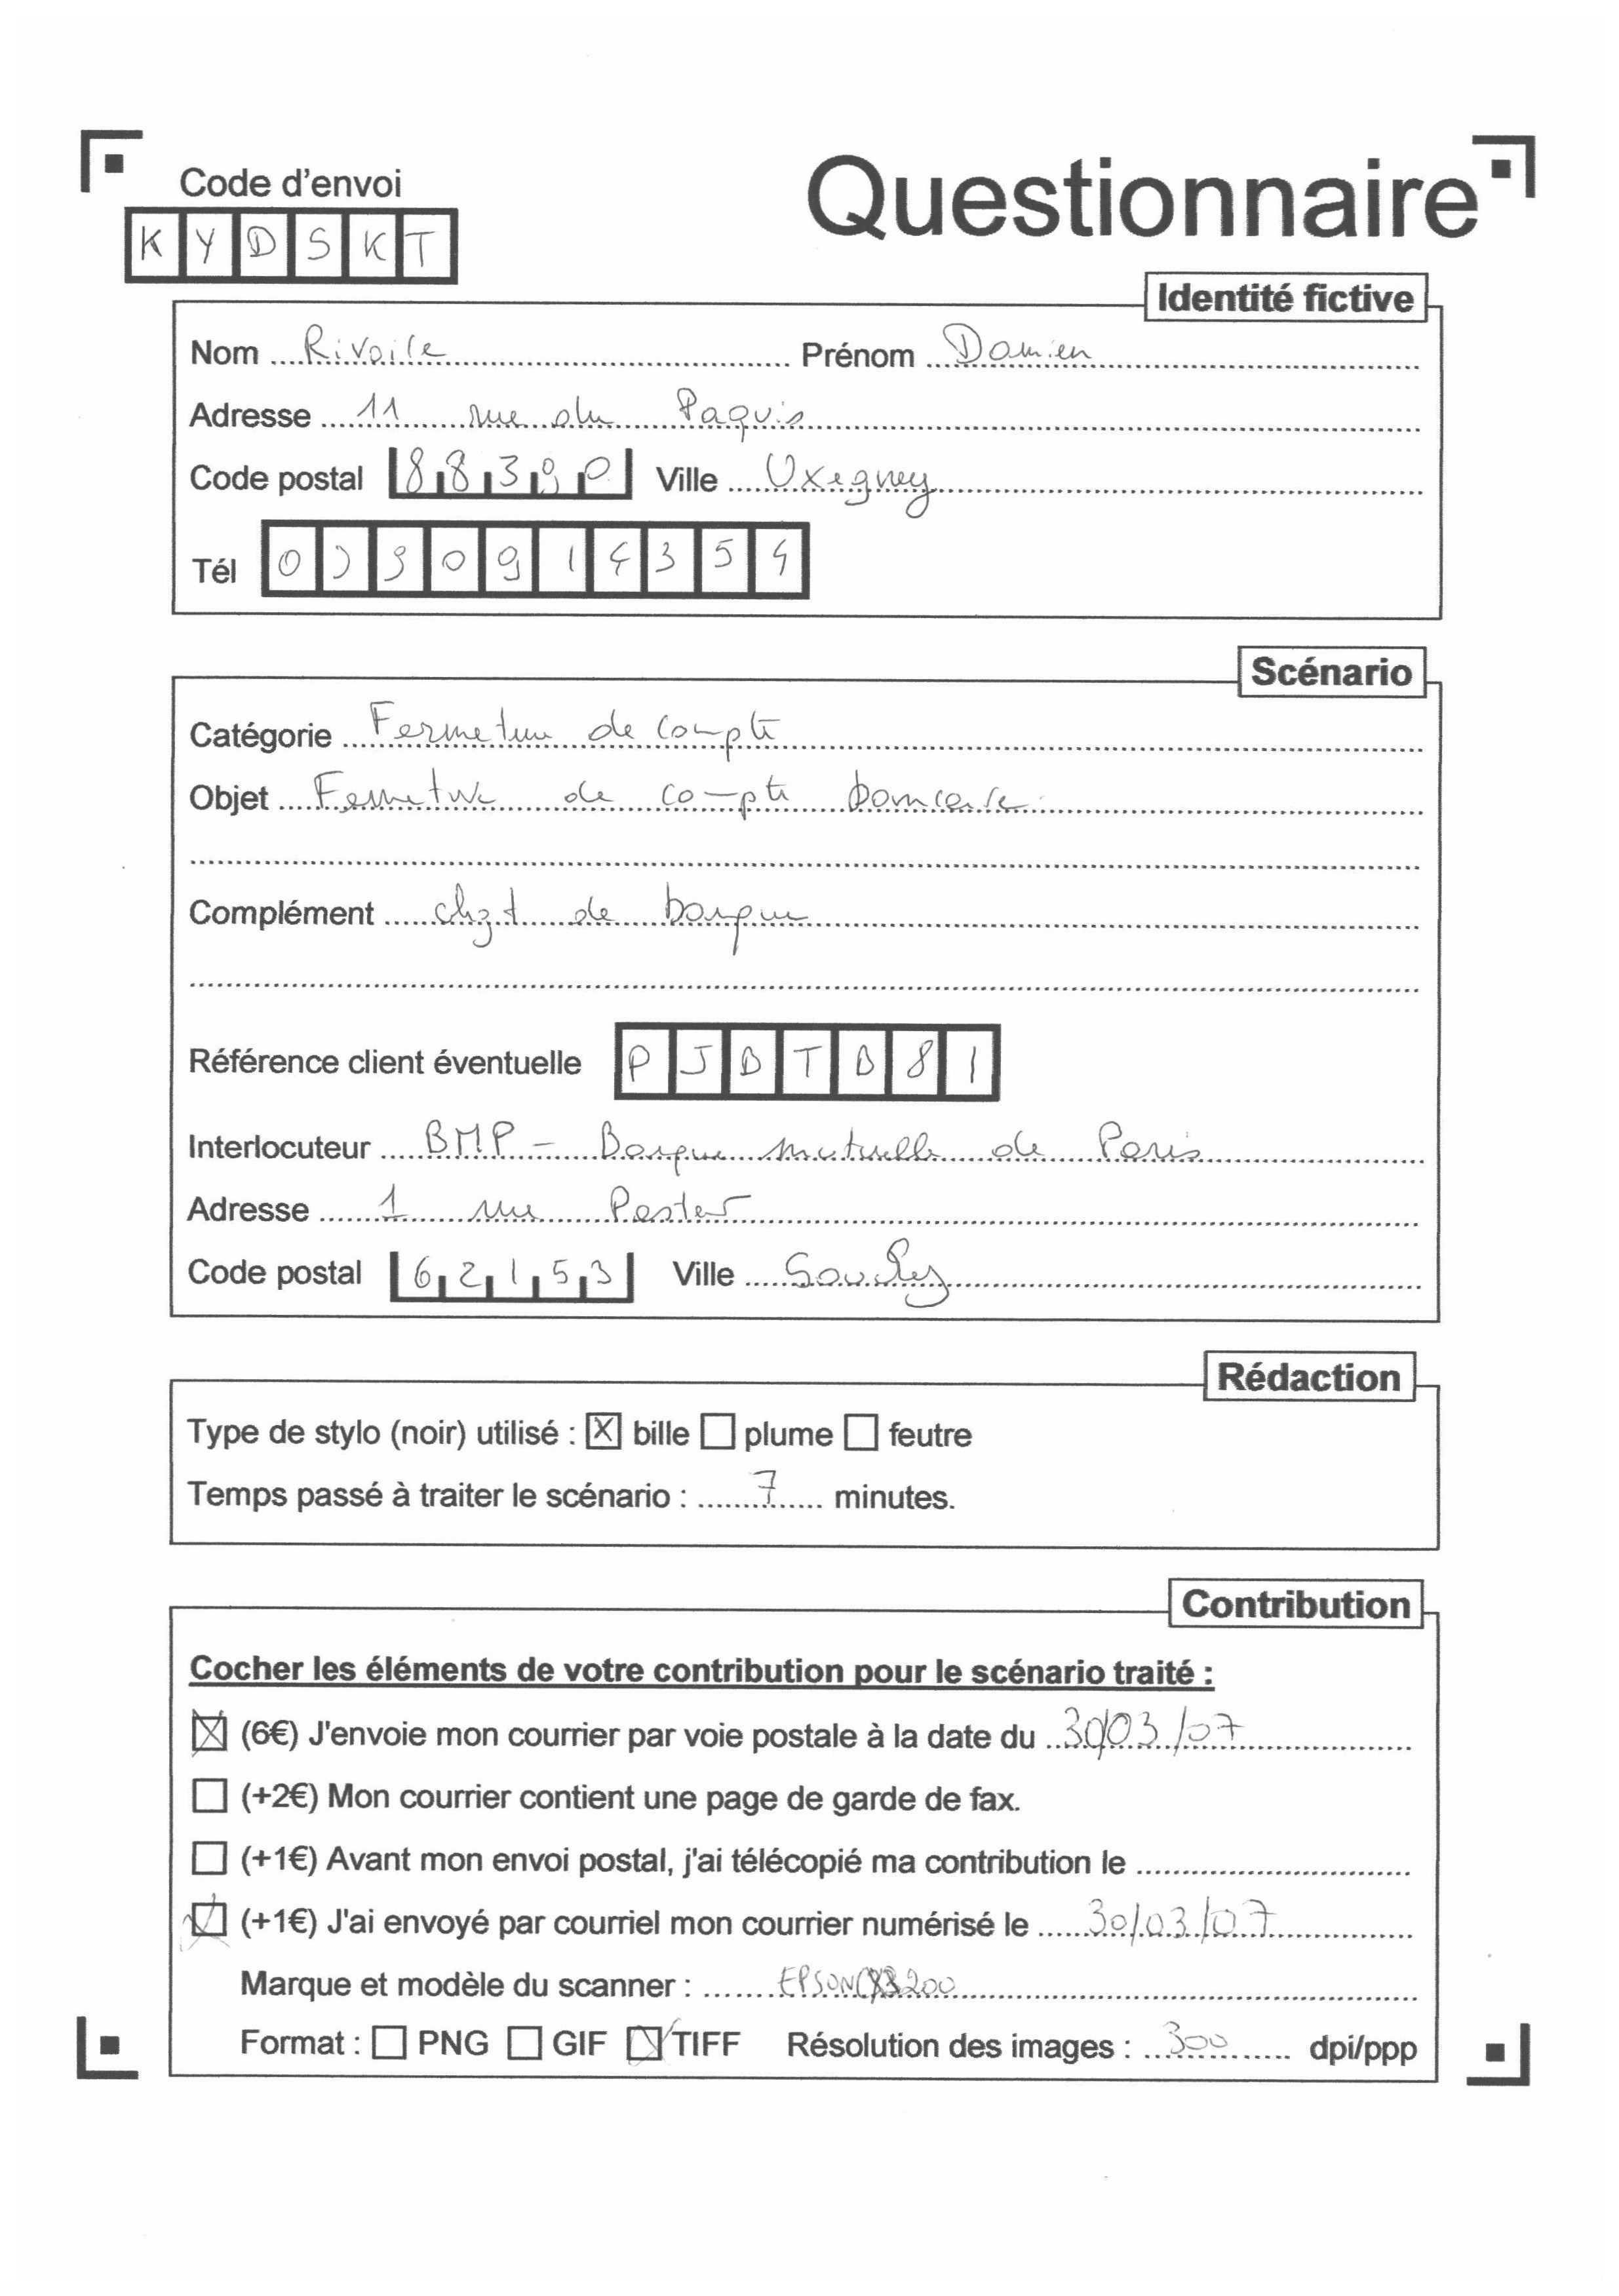 Code d'envoi
Questionnaire
K Y D S K T
Identité fictive
Nom Rivoile Prénom Damien
Adresse 11 rue du Paquis
Code postal 88390 Ville Uxegney
Tél 0 3 0 9 1 4 3 5 4
Scénario
Catégorie Fermeture de compte
Objet Fermeture de compte bancaire
Complément chgt de banque
Référence client éventuelle P J B T D 8 1
Interlocuteur BMP - Banque mutuelle de Paris
Adresse 1 rue Pasteur
Code postal 62153 Ville Souchez
Rédaction
Type de stylo (noir) utilisé : X bille plume feutre
Temps passé à traiter le scénario : 7 minutes.
Contribution
Cocher les éléments de votre contribution pour le scénario traité :
X (6€) J'envoie mon courrier par voie postale à la date du 30/03/07
(+2€) Mon courrier contient une page de garde de fax.
(+1€) Avant mon envoi postal, j'ai télécopié ma contribution le
X (+1€) J'ai envoyé par courriel mon courrier numérisé le 30/03/07
Marque et modèle du scanner : EPSON 3200
Format : PNG GIF X TIFF Résolution des images : 300 dpi/ppp